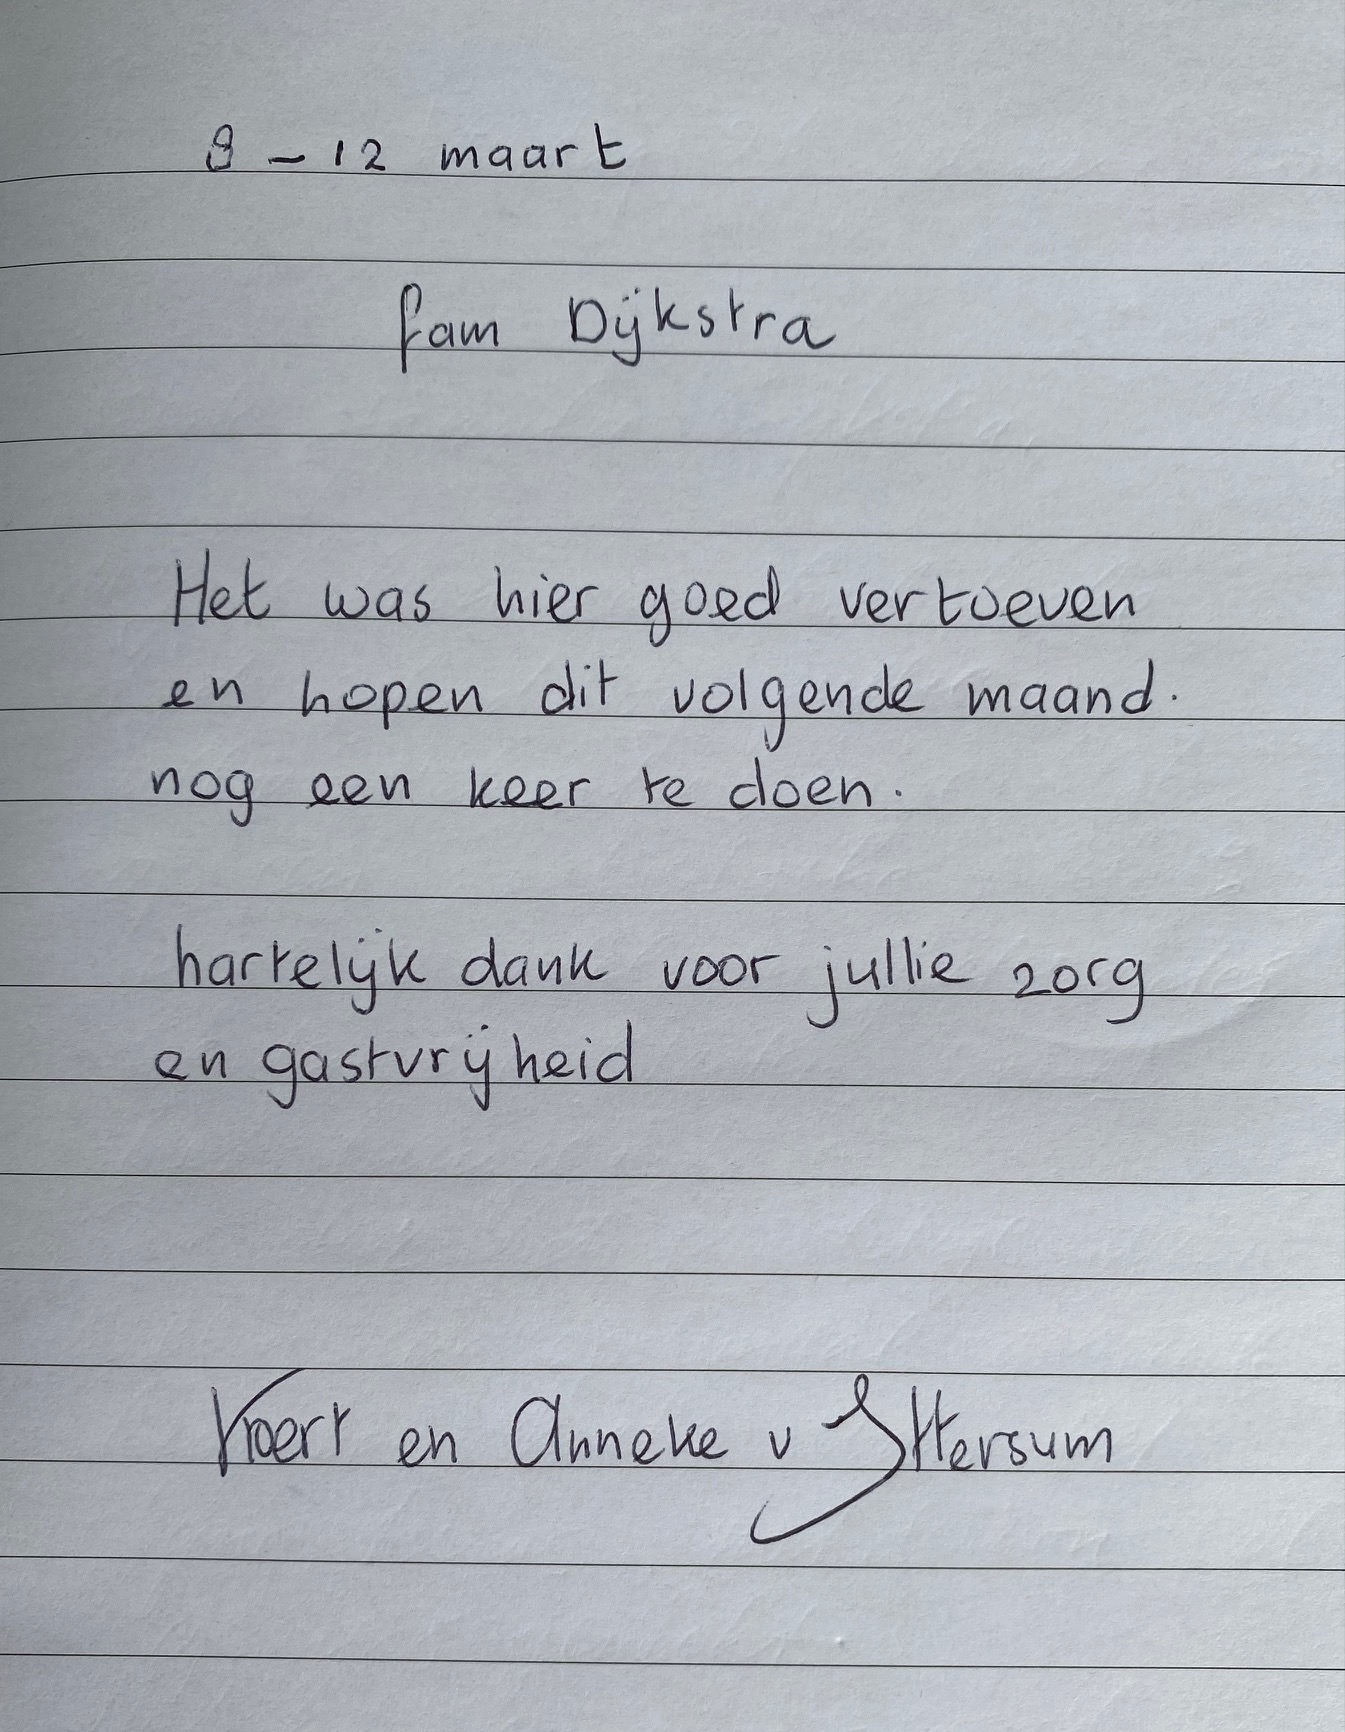 9 - 12 maart
fam Dijkstra
Het was hier goed vertoeven
en hopen dit volgende maand.
nog een keer te doen.
hartelijk dank voor jullie zorg
en gastvrijheid
Koert en Anneke v Ittersum